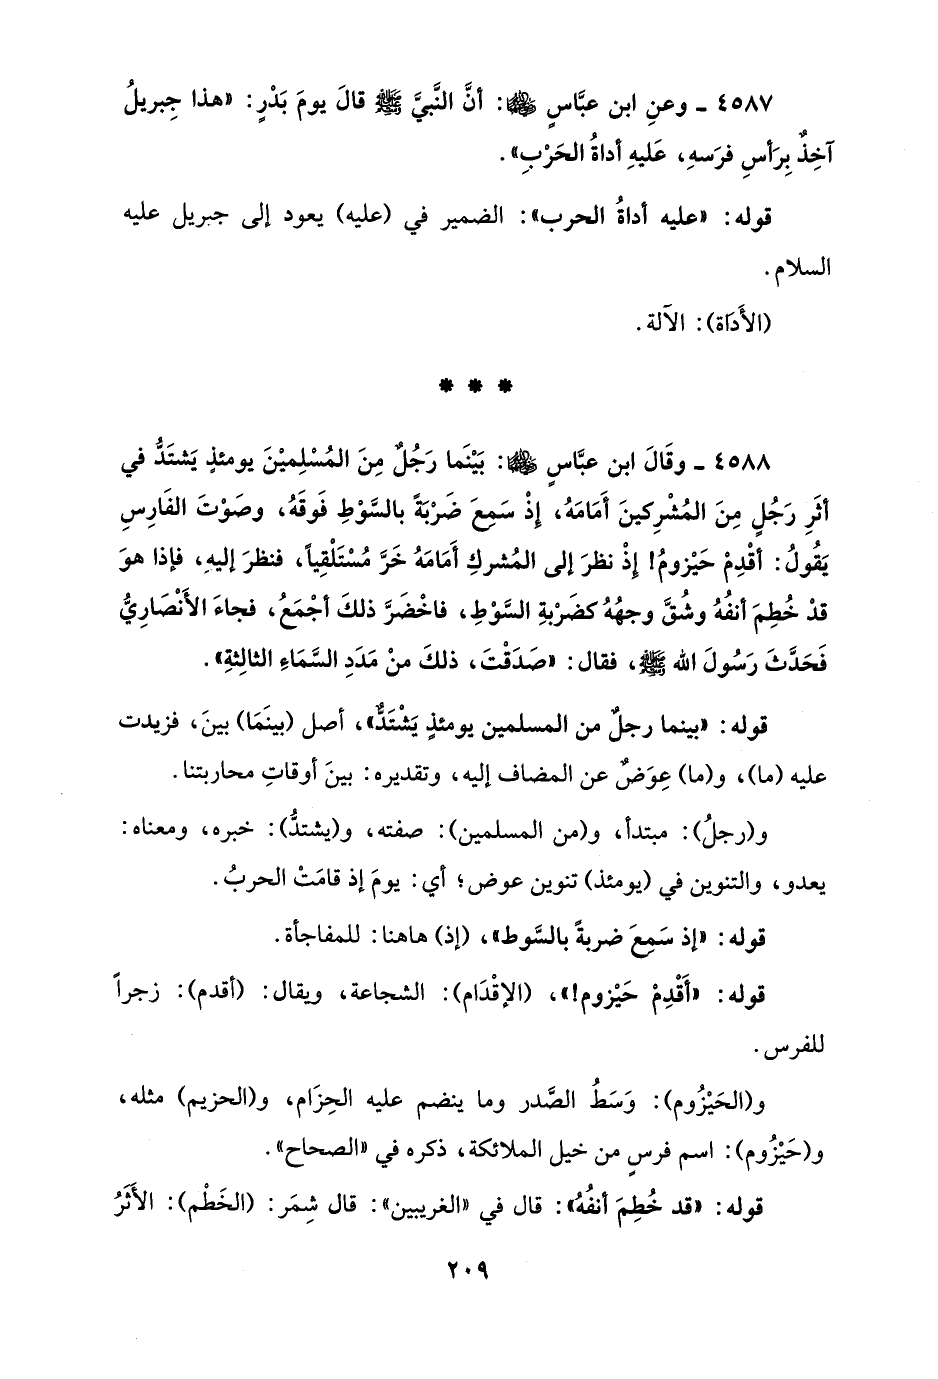 ٤٥٨٧ ـ وعنِ ابن عبَّاسٍ ﵁: أنَّ النَّبيَّ ﷺ قالَ يومَ بَدْرٍ: «هذا جِبريلُ
آخِذٌ بِرَأسِ فرَسهِ، عَليهِ أداةُ الحَرْبِ».
قوله: «عليه أداةُ الحرب»: الضمير في (عليه) يعود إلى جبريل عليه
السلام.
(الأَدَاة): الآلة.
* * *
٤٥٨٨ ـ وقَالَ ابن عبَّاسٍ ﵁: بَيْنَما رَجُلٌ مِنَ المُسْلِميْنَ يومئذٍ يَشتَدُّ في
أثَرِ رَجُلٍ مِنَ المُشْرِكينَ أمَامَهُ، إذْ سَمِعَ ضَرْبَةً بالسَّوْطِ فَوقَهُ، وصَوْتَ الفَارِسِ
يَقُولُ: أقْدِمْ حَيْزومُ! إذْ نظرَ إلى المُشركِ أمَامَهُ خَرَّ مُسْتَلْقِياً، فنظرَ إليهِ، فإذا هوَ
قدْ خُطِمَ أنفُهُ وشُقَّ وجهُهُ كضَرْبةِ السَّوْطِ، فاخْضَرَّ ذلكَ أجْمَعُ، فجاءَ الأنْصَاريُّ
فَحَدَّثَ رَسُولَ الله ﷺ، فقال: «صَدَقْتَ، ذلكَ منْ مَدَدِ السَّماءِ الثالثِةِ».
قوله: «بينما رجلٌ من المسلمين يومئذٍ يَشْتَدُّ»، أصل (بينَمَا) بينَ، فزيدت
عليه (ما)، و(ما) عِوَضٌ عن المضاف إليه، وتقديره: بينَ أوقاتِ محاربتنا.
و(رجلُ): مبتدأ، و(من المسلمين): صفته، و(يشتدُّ): خبره، ومعناه:
يعدو، والتنوين في (يومئذ) تنوين عوض؛ أي: يومَ إذ قامَتْ الحربُ.
قوله: «إذ سَمِعَ ضربةً بالسَّوط»، (إذ) هاهنا: للمفاجأة.
قوله: «أَقْدِمْ حَيْزوم!»، (الإقْدَام): الشجاعة، ويقال: (أقدم): زجراً
للفرس.
و(الحَيْزُوم): وَسَطُ الصَّدر وما ينضم عليه الحِزَام، و(الحزيم) مثله،
و(حَيْزُوم): اسم فرسٍ من خيل الملائكة، ذكره في «الصحاح».
قوله: «قد خُطِمَ أنفُهُ»: قال في «الغريبين»: قال شِمَر: (الخَطْم): الأَثَرُ
٢٠٩